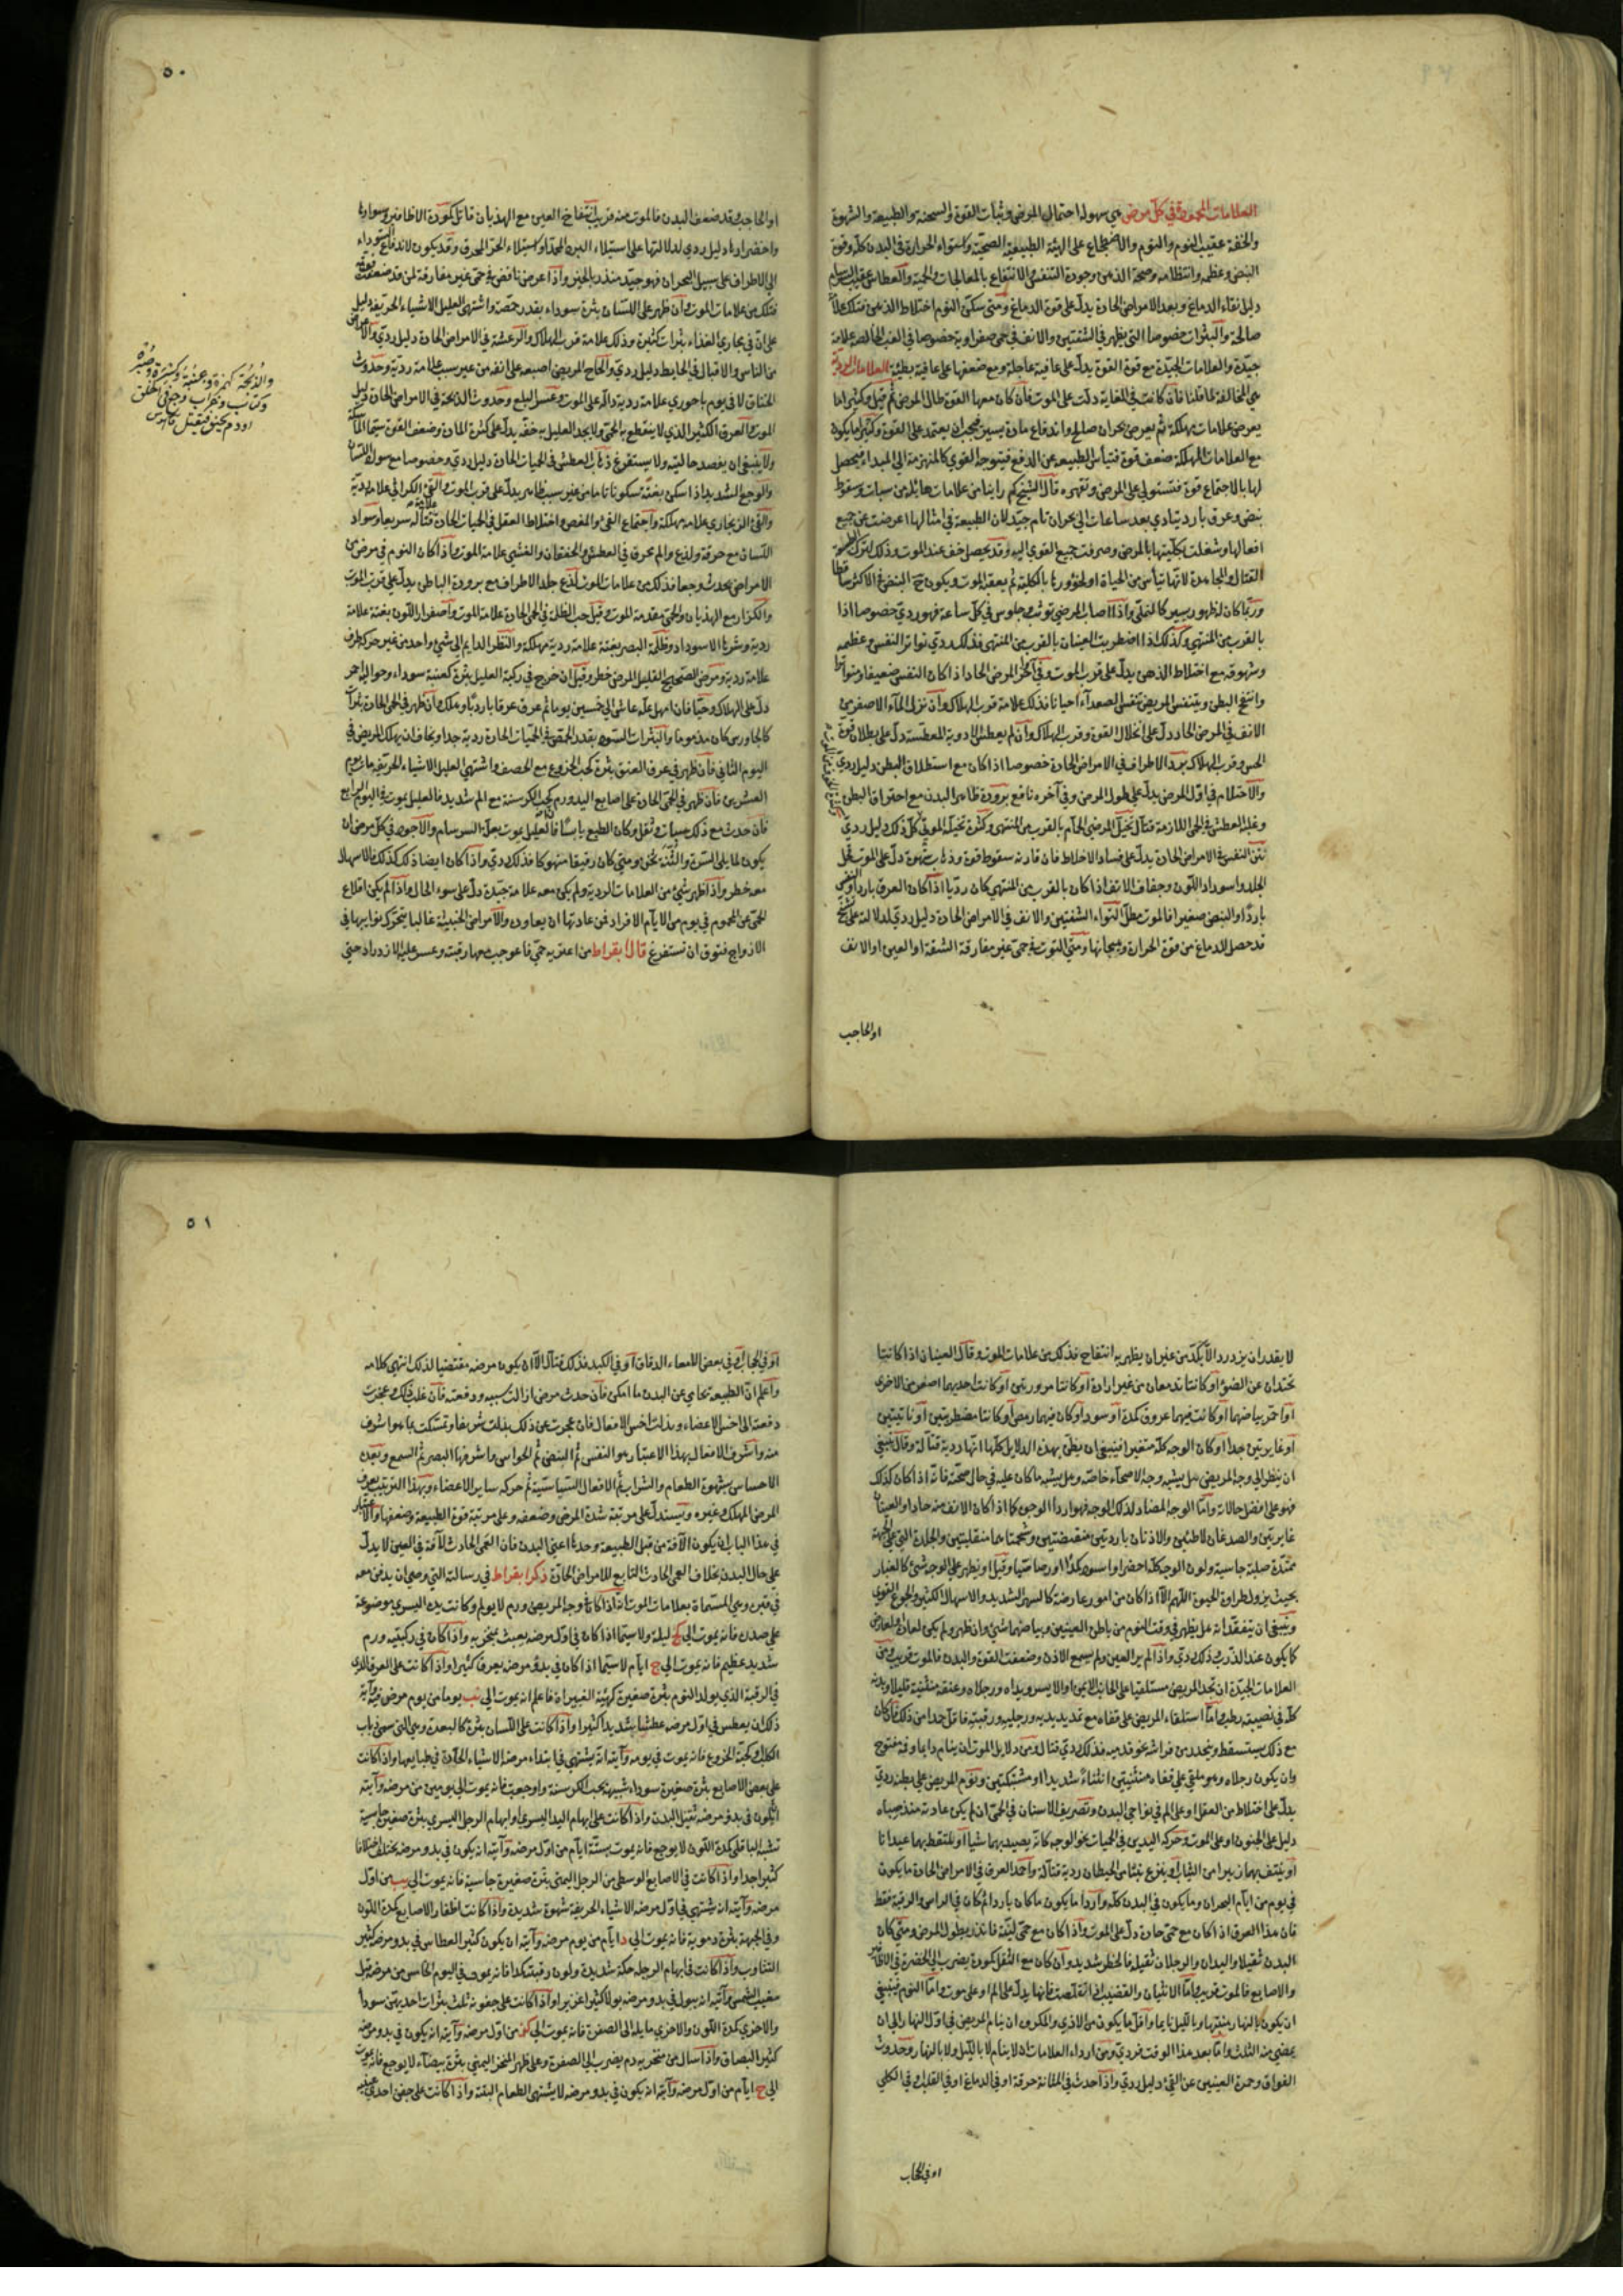 العلامات المحمودة في كل مرض هي سهولة احتمال المرض وثبات القوة والسحنة والطبيعة والشهوة
والخفة عقيب النوم والنوم والاضطجاع على الهيئة الطبيعية الصحية واستواء الحرارة في البدن كله وقوة
النبض وعظمه وانتظامه وصحة الذهن وجودة التنفس والانتفاع بالمعالجات والحمية والعطاس عقيب السرسام
دليل نقاء الدماغ وبعد الامراض الحادة يدل على قوة الدماغ ومتى سكن النوم اختلاط الذهن فتلك علامة
صالحة والبثرات خصوصا التي يظهر في الشفتين والانف في حمى صفراوية خصوصا في الغب الخالص علامة
جيدة والعلامات الجيدة مع قوة القوة يدل على عافية عاجلة ومع ضعفها على عافية بطيئة العلامات الردية
هي المخالفة لما قلنا فان كانت في الغاية دلت على الموت فان كان معها القوة طال المرض ثم قتل وكثيرا ما
يعرض علامات مهلكة ثم يعرض بحران صالح واندفاع مادة يسير فيجب ان يعتمد على القوة وكثيرا ما يكون
مع العلامات المهلكة ضعف قوة فتيأس الطبيعة عن الدفع فيتوجه القوي كالمنهزمة الى المبداء فيحصل
لها بالاجتماع قوة فتستولي على المرض وتقهره قال الشيخ كم راينا من علامات هايلة من سبات وسقوط
نبض وعرق بارد يتادي بعد ساعات الى بحران تام جيد لان الطبيعة في امثالها اعرضت عن جميع
افعالها وشغلت بكليتها بالمرض وصرفت جميع القوي اليه وقد يحصل خف عند الموت وذلك لترك الطبيعة
القتال والمجاهدة لانها تيأس من الحياة او لخؤورها بالكلية ثم يعقبه الموت ويكون ح النبض في الاكثر ساقطا
وربما كان لظهور يسير كالنملي واذا اصاب المرضي توثب وجلوس في كل ساعة فهو ردي خصوصا اذا
بالقرب من المنتهي وكذلك اذا اضطربت العينان بالقرب من المنتهي فذلك ردي تواتر النفس وعظمه
وشهوقه مع اختلاط الذهن يدل على قرب الموت وفي آخر المرض الحاد اذا كان النفس ضعيفا متواترا
وانتفخ البطن ويتنفس المريض تنفس الصعدآء احيانا فذلك علامة قرب الهلاك وان نزل المآء الاصفر من
الانف في المرض الحاد دل على انحلال القوة وقرب الهلاك وان لم يعطس الادوية المعطسة دل على بطلان قوة
الحس وقرب الهلاك برد الاطراف في الامراض الحادة خصوصا اذا كان مع استطلاق البطن دليل ردي
والاحتلام في اول المرض يدل على طول المرض وفي آخره نافع برودة ظاهر البدن مع احتراق البطن
وغلبة العطش في الحمى اللازمة قتال تخيل المرضى الحمام بالقرب من المنتهي وكثرة تخيله الموتي كل ذلك دليل ردي
نتن النفس في الامراض الحادة يدل على فساد الاخلاط فان قارنه سقوط قوة وذهاب شهوة دل على الموت قحل
الجلد واسوداد اللون وجفاف الانف اذا كان بالقرب من المنتهي كان رديا اذا كان العرق باردا والنفس
باردا والنبض صغيرا فالموت مطل التواء الشفتين والانف في الامراض الحادة دليل ردي لدلالته على تشنج
قد حصل للدماغ من قوة الحرارة وهيجانها ومتى التوت في حمى غير مفارقة الشفة او العين او الانف
او الحاجب
٥٠
او الحاجب وقد ضعف البدن فالموت منه قريب انتفاخ العين مع الهذيان قاتل كمودة الاظافير وسوادها
واخضرارها دليل ردي لدلالتها على استيلاء البرد المجمد او استيلاء الحر المحرق وقد يكون لاندفاع السوداء
الى الاطراف على سبيل البحران فهو جيد منذر بالخير واذا عرض نافض في حمى غير مفارقة لمن قد ضعفت قوته
فتلك من علامات الموت وان ظهر على اللسان بثرة سوداء بقدر حمصة واشتهي العليل الاشياء الحريفة دليل
على ان في مجاري الغذاء بثرات كثيرة وذلك علامة قرب الهلاك والرعشة في الامراض الحادة دليل ردي والاعراض
من الناس والاقبال في الحايط دليل ردي والحاح المريض اصبعه على انفه من غير سبب علامة ردية وحدوث
الخناق لا في يوم باحوري علامة ردية دالة على الموت وعسر البلع وحدوث الذبحة في الامراض الحادة دليل
الموت والعرق الكثير الذي لا ينقطع به الحمى ولا يجد العليل به خفة يدل على كثرة المادة وضعف القوة سيما الماسكة
ولا ينبغي ان يفصد حالتيه ولا يستفرغ ذهاب العطش في الحميات الحادة دليل ردي وخصوصا مع سواد اللسان
والوجع الشديد اذا سكن بغتة سكونا تاما من غير سبب ظاهر يدل على قرب الموت والقئ الكراثي علامة ردية
والقئ الزنجاري علامة مهلكة واجتماع القئ والمغص واختلاط العقل في الحميات الحادة علامة قتالة سريعا وسواد
اللسان مع حرقة ولذع والم محرق في العطش والخفقان والغشي علامة الموت واذا كان النوم في مرض من
الامراض يحدث وجعا فذلك من علامات الموت لذع جلد الاطراف مع برودة الباطن يدل على قرب الموت
والكزاز مع الهذيان والحمى مقدمة الموت وقيل حب الظلمة في الحمى الحادة علامة الموت واصفرار اللون بغتة علامة
ردية وشرها الاسوداد وظلمة البصر بغتة علامة ردية مهلكة والنظر الدايم الى شئ واحد من غير حركة طرف
علامة ردية ومرض الصحيح القليل المرض خطر وقيل ان خرج في ركبة العليل بثرة كعنبة سوداء وحواليها احمر
دل على الهلاك وحيا فان امهل عله عاش الى خمسين يوما ثم عرق عرقا باردا وهلك وان ظهر في الحمى الحادة بثرات
كالجاورس كان مذموما والبثرات السود بقدر الحمص في الحميات الحارة ردية جدا ويخاف ان يهلك المريض في
اليوم الثاني فان ظهر في عرق العنق بثرة كحب الخروع مع الحصف واشتهي العليل الاشياء الحريفة مات يوم
العشرين فان ظهر في الحمى الحادة على اصابع اليد ورم كحب الكرسنة مع الم شديد فالعليل يموت في اليوم الرابع
فان حدث مع ذلك سبات وثقل وكان الطبع يابسا فالعليل يموت بعلة السرسام والاجود في كل مرض ان
يكون لما يلى السرة والثنة ثخن ومتى كان رقيقا منهوكا فذلك ردي واذا كان ايضا ذلك كذلك فالاسهال
معه خطر واذا ظهر شئ من العلامات الردية ولم يكن معه علامة جيدة دل على سوء الحال واذا لم يكن اقلاع
الحمى عن المحموم في يوم من الايام الافراد فمن عادتها ان يعاود والامراض الخبيثة غالبا يتحرك نوايبها في
الازواج فتوق ان تستفرغ قال ابقراط من اعترته حمى فاعوجت معها رقبته وعسر عليه الازدراد حتى
والذبحة كهمزة وعنبة وكسرة وصبرة
وكتاب وغراب وجع في الحلق
او دم يخنق فيقتل قاموس
لا يقدر ان يزدرد الا بكد من غير ان يظهر به انتفاخ فذلك من علامات الموت وقال العينان اذا كانتا
تحيدان عن الضوء او كانتا تدمعان من غير ارادة او كانتا مزورتين او كانت احديهما اصغر من الاخرى
او احمر بياضهما او كانت فيهما عروق كمدة او سود او كان فيهما رمص او كانتا مضطربتين او ناتيتين
او غايرتين جدا او كان الوجه كله متغيرا فينبغي ان يظن بهذه الدلايل كلها انها ردية قتالة وقال ينبغي
ان ينظر الى وجه المريض هل يشبه وجه الاصحآء خاصة وهل يشبه ما كان عليه في حال صحته فانه اذا كان كذلك
فهو على افضل حالاته واما الوجه المضاد لذلك الوجه فهو اردأ الوجوه كما اذا كان الانف منه حادا والعينان
غايرتين والصدغان لاطئين والاذنان باردتين منقبضتين وشحمتاهما منقلبتين والجلدة التي على الجبهة
ممتدة صلبة جاسية ولون الوجه كله اخضر او اسود كمدا او رصاصيا وقيل او يظهر على الوجه شئ كالغبار
بحيث يزول طراوة الحيوة اللهم الا اذا كان من امور عارضة كالسهر الشديد والاسهال الكثير والجوع القوي
وينبغي ان يتفقد انه هل يظهر في وقت النوم من باطن العينين وبياضهما شئ وان ظهر ولم يكن لعادة ولعارض
كما يكون عند الذرب فذلك ردي واذا لم ير العين ولم يسمع الاذن وضعفت القوة والبدن فالموت قريب ومن
العلامات الجيدة ان تجد المريض مستلقيا على الجانب الايمن او الايسر ويداه ورجلاه وعنقه منثنية قليلا وبدنه
كله في نصبته رطبا واما استلقاء المريض على قفاه مع تمديد يديه ورجليه ورقبته فاقل جدا من ذلك فان كان
مع ذلك يستسقط وينحدر من فراشه نحو قدميه فذلك ردي قتال ومن دلايل الموت ان ينام دايما وفمه مفتوح
وان يكون رجلاه وهو ملقي على قفاه منثنيتين انثناء شديدا او مشتبكتين ونوم المريض على بطنه ردي
يدل على اختلاط من العقل او على الم في نواحي البدن وتصريف الاسنان في الحمى ان لم يكن عادته منذ صباه
دليل على الجنون او على الموت وحركة اليدين في الحميات نحو الوجه كانه يصيد بهما شيأ او يلتقط بهما عيدانا
او ينتف بهما زيبرا من الثياب او ينزع تبنا من الحيطان ردية قتالة واحمد العرق في الامراض الحادة ما يكون
في يوم من ايام البحران وما يكون في البدن كله واردأ ما يكون ما كان باردا ثم كان في الراس والرقبة فقط
فان هذا العرق اذا كان مع حمى حادة دل على الموت واذا كان مع حمى لينة فانذر بطول المرض ومتى كان
البدن ثقيلا واليدان والرجلان ثقيلة فالخطر شديد وان كان مع الثقل كمودة يضرب الى الخضرة في الاظافير
والاصابع فالموت قريب واما الانثيان والقضيب اذا تقلصت فانها يدل على الم او على موت واما النوم فينبغي
ان يكون بالنهار منتبها وبالليل نايما واقل ما يكون من الاذي والمكروه ان ينام المريض في اول النهار الى ان
يمضي منه الثلث واما بعد هذا الوقت فردي ومن ارداء العلامات ان لا ينام لا بالليل ولا بالنهار وحدوث
الفواق وحمرة العينين عن القئ دليل ردي واذا حدث في المثانة حرقة او في الدماغ او في القلب او في الكلي
او في الحجاب
٥١
او في الحجاب او في بعض الامعاء الدقاق او في الكبد فذلك قتال الا ان يكون مرضه مقتضيا لذلك انتهي كلامه
واعلم ان الطبيعة تحامي عن البدن ما امكن فان حدث مرض ازالت سببه ودفعته فان غلب ذلك وعجزت
دفعته الى اخس الاعضاء وبذلت اخس الافعال فان عجزت عن ذلك بذلت شريفا وتمسكت بما هو اشرف
منه واشرف الافعال بهذا الاعتبار هو النفس ثم النبض ثم الحواس واشرفها البصر ثم السمع وبعده
الاحساس بشهوة الطعام والشراب ثم الافعال السياسية ثم حركة ساير الاعضاء وبهذا الترتيب يعرف
المرض المهلك وغيره ويستدل على مرتبة شدة المرض وضعفه وعلى مرتبة قوة الطبيعة وضعفها والاعتبار
في هذا الباب ان يكون الآفة من قبل الطبيعة وحدها اعني البدن فان العمى الحادث لآفة في العين لا يدل
على حال البدن بخلاف العمى الحادث التابع للامراض الحادة ذكر ابقراط في رسالته التي وصي ان يدفن معه
في قبره وهي المسماة بعلامات الموت انه اذا كان في وجه المريض ورم لا يولم وكانت يده اليسري موضوعة
على صدره فانه يموت الى كج ليلة ولا سيما اذا كان في اول مرضه يعبث بمنخريه واذا كان في ركبتيه ورم
شديد عظيم فانه يموت الى ح ايام لا سيما اذا كان في بدو مرضه يعرق كثيرا واذا كانت على العرق الذي
في الرقبة الذي يولد النوم بثرة صغيرة كهيئة الغبيراء فاعلم انه يموت الى نب يوما من يوم مرض فيه وآية
ذلك ان يعطس في اول مرضه عطشا شديدا كثيرا واذا كانت على اللسان بثرة كالبعرة وهي التي سمى ذباب
الكلب وكحبة الخروع فانه يموت في يومه وآيته انه يشتهي في ابتداء مرضه الاشياء الحادة في طبايعها واذا كانت
على بعض الاصابع بثرة صغيرة سوداء شبيهة بحب الكرسنة واوجعت فانه يموت الى يومين من مرضه وآيته
ان يكون في بدو مرضه ثقيل البدن واذا كانت على ابهام اليد اليسري او ابهام الرجل اليسري بثرة صغيرة جاسية
تشبه الباقلي كمدة اللون لا يوجع فانه يموت بستة ايام من اول مرضه وآيته انه يكون في بدو مرضه يختلف اختلافا
كثيرا جدا واذا كانت في الاصابع الوسطى من الرجل اليمنى بثرة صغيرة جاسية فانه يموت الى يب من اول
مرضه وآيته ان يشتهي في اول مرضه الاشياء الحريفة شهوة شديدة واذا كانت اظفار الاصابع كمدة اللون
وفي الجبهة بثرة دموية فانه يموت الى د ايام من يوم مرضه وآيته ان يكون كثير العطاس في بدو مرضه كثير
التثاوب واذا كانت في ابهام الرجل حكة شديدة ولون رقبته كمدا فانه يموت في اليوم الخامس من مرضه قبل
مغيب الشمس وآيته انه يبول في بدو مرضه بولا كثيرا غزيرا واذا كانت على جفونه ثلث بثرات احديهن سودا
والاخري كمدة اللون والاخري مايلة الى الصفرة فانه يموت الى كز من اول مرضه وآيته انه يكون في بدو مرضه
كثير البصاق واذا سال من منخريه دم يضرب الى الصفرة وعلى ظهر المنخر اليمنى بثرة بيضآء لا يوجع فانه يموت
الى ح ايام من اول مرضه وآيته انه يكون في بدو مرضه لا يشتهي الطعام البتة واذا كانت على جفن احدي عينيه